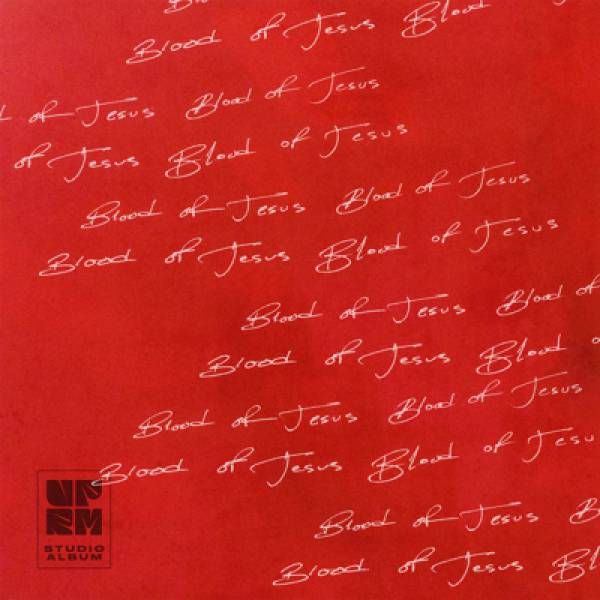 Blood of Jesus Blood
d of Jesus Blood of Jesus
of Jesus Blood of Jesus
Blood of Jesus Blood of Jesus
Blood of Jesus Blood of Jesus
Blood of Jesus Blood of
Blood of Jesus Blood o
Blood of Jesus Blood of Jesus
Blood of Jesus Blood of Jesu
Blood of Jesus B
Blood of Jesus Bl
UP
RM
STUDIO
ALBUM